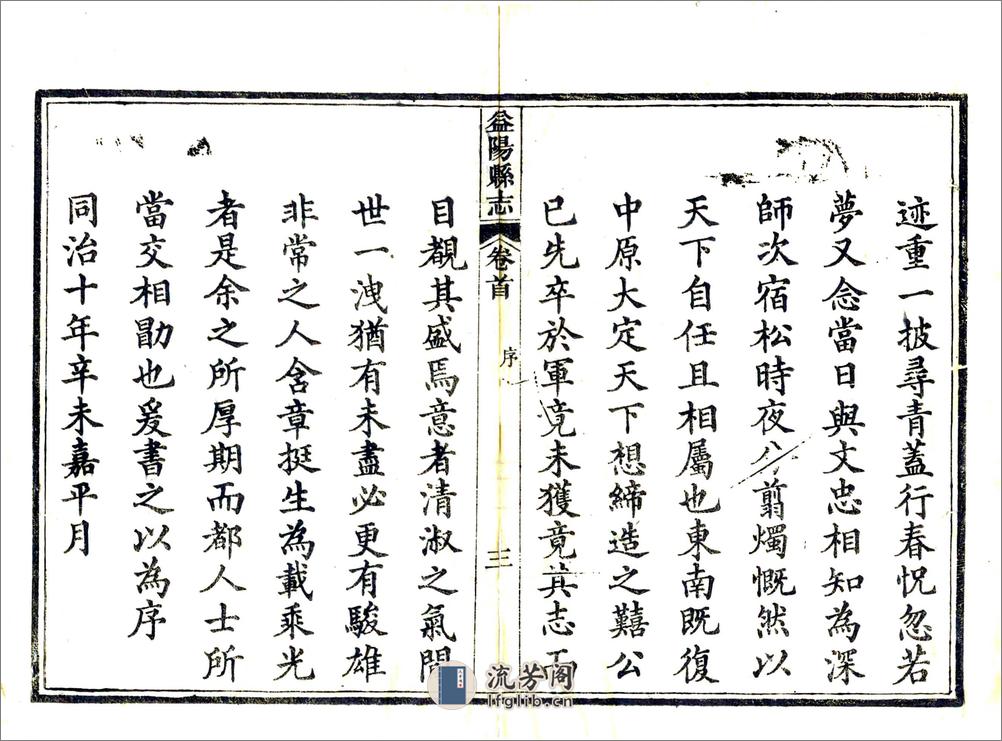 迹重一披尋青蓋行春怳忽若
夢又念當日與文忠相知為深
師次宿松時夜分翦燭慨然以
天下自任且相屬也東南既復
中原大定天下想締造之囏公
已先卒於軍竟未獲竟其志而
益陽縣志
卷首
序
三
目覩其盛焉意者清淑之氣間
世一洩猶有未盡必更有駿雄
非常之人含章挺生為載乘光
者是余之所厚期而都人士所
當交相勖也爰書之以為序
同治十年辛未嘉平月
流芳阁
lfglib.cn